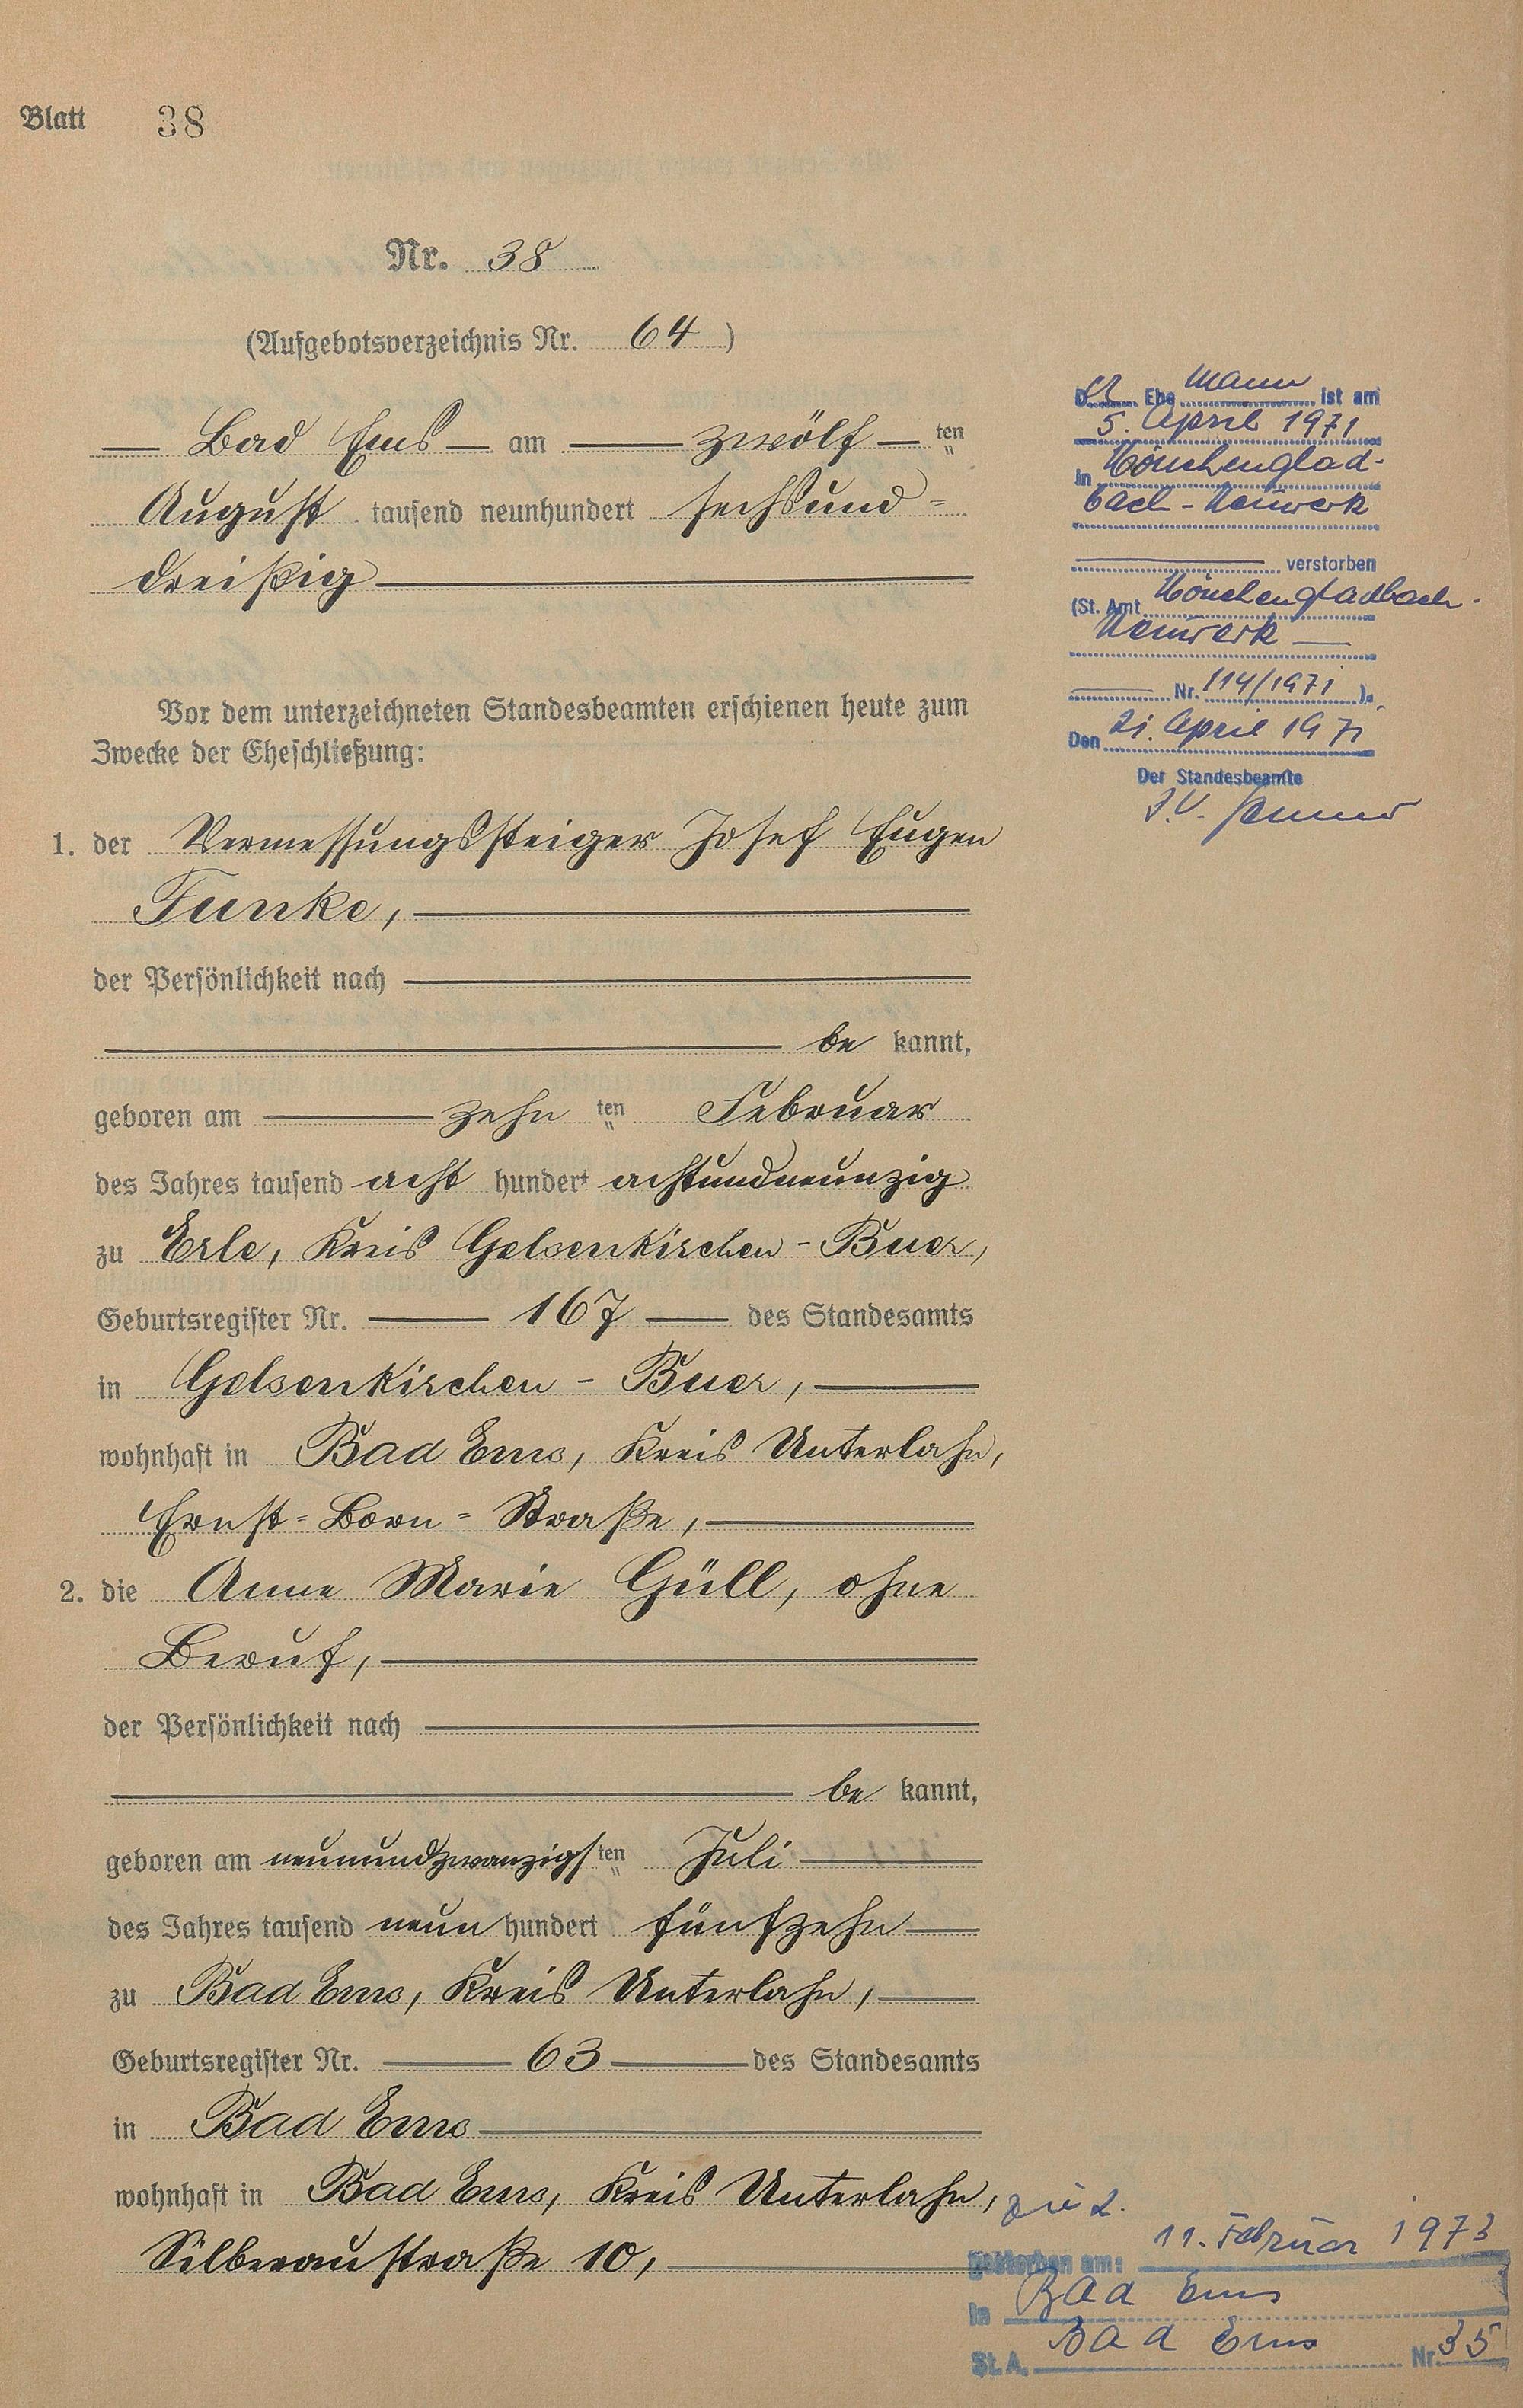 Blatt 38
Nr. 38
(Aufgebotsverzeichnis Nr. 64)
— Bad Ems — am — zwölf — ten
August tausend neunhundert sechsund=
dreißig —
Vor dem unterzeichneten Standesbeamten erschienen heute zum
Zwecke der Eheschließung:
1. der Vermessungssteiger Josef Eugen
Funke, —
der Persönlichkeit nach —
— be kannt,
geboren am — zehn ten Februar
des Jahres tausend acht hundert achtundneunzig
zu Erle, Kreis Gelsenkirchen-Buer,
Geburtsregister Nr. — 167 — des Standesamts
in Gelsenkirchen - Buer, —
wohnhaft in Bad Ems, Kreis Unterlahn,
Ernst=Born=Straße, —
2. die Anne Marie Güll, ohne
Beruf, —
der Persönlichkeit nach —
— be kannt,
geboren am neunundzwanzigsten Juli —
des Jahres tausend neun hundert fünfzehn —
zu Bad Ems, Kreis Unterlahn, —
Geburtsregister Nr. — 63 — des Standesamts
in Bad Ems —
wohnhaft in Bad Ems, Kreis Unterlahn,
Silberaustraße 10, —
Der Ehemann ist am
5. April 1971
in Mönchenglad-
bach-Neuwerk
— verstorben
(St. Amt Mönchengladbach-
Neuwerk —
— Nr. 114/1971 ).
Den 21. April 1971
Der Standesbeamte
J.V.
zu 2.
gestorben am: 11. Februar 1973
in Bad Ems
St. A. Bad Ems Nr. 35